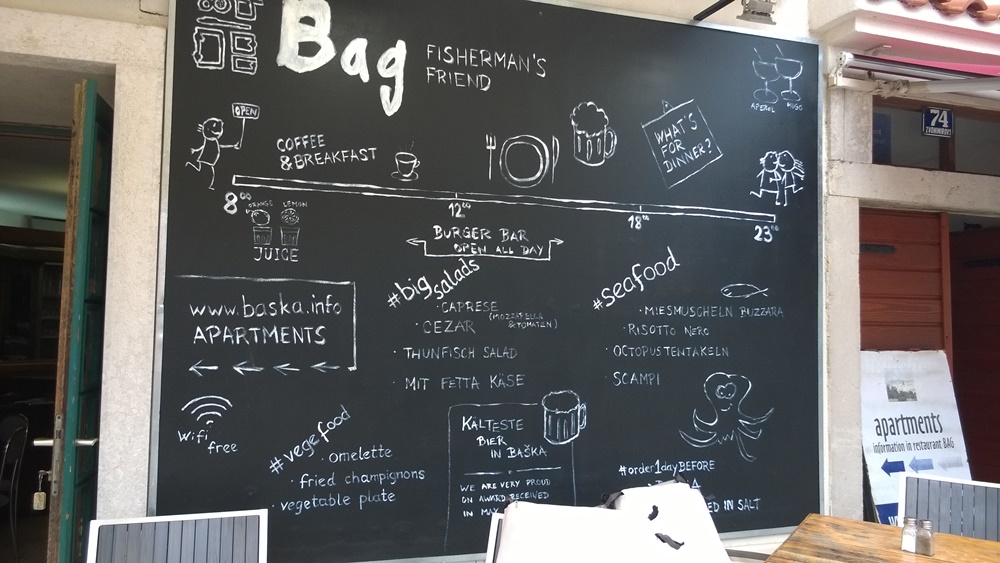 Bag
FISHERMAN'S
FRIEND
OPEN
COFFEE
& BREAKFAST
WHAT'S
FOR
DINNER?
APEROL
HUGO
74
ZVONIMIROVA
8⁰⁰
12⁰⁰
18⁰⁰
23⁰⁰
ORANGE
LEMON
JUICE
BURGER BAR
OPEN ALL DAY
www.baska.info
APARTMENTS
#big salads
· CAPRESE
(MOZZARELLA
& TOMATEN)
· CEZAR
· THUNFISCH SALAD
· MIT FETTA KÄSE
#seafood
· MIESMUSCHELN BUZZARA
· RISOTTO NERO
· OCTOPUSTENTAKELN
· SCAMPI
Wifi
free
#vege food
· omelette
· fried champignons
· vegetable plate
KÄLTESTE
BIER
IN BAŠKA
WE ARE VERY PROUD
ON AWARD RECEIVED
IN MAY
#order1dayBEFORE
IN SALT
apartments
information in restaurant BAG